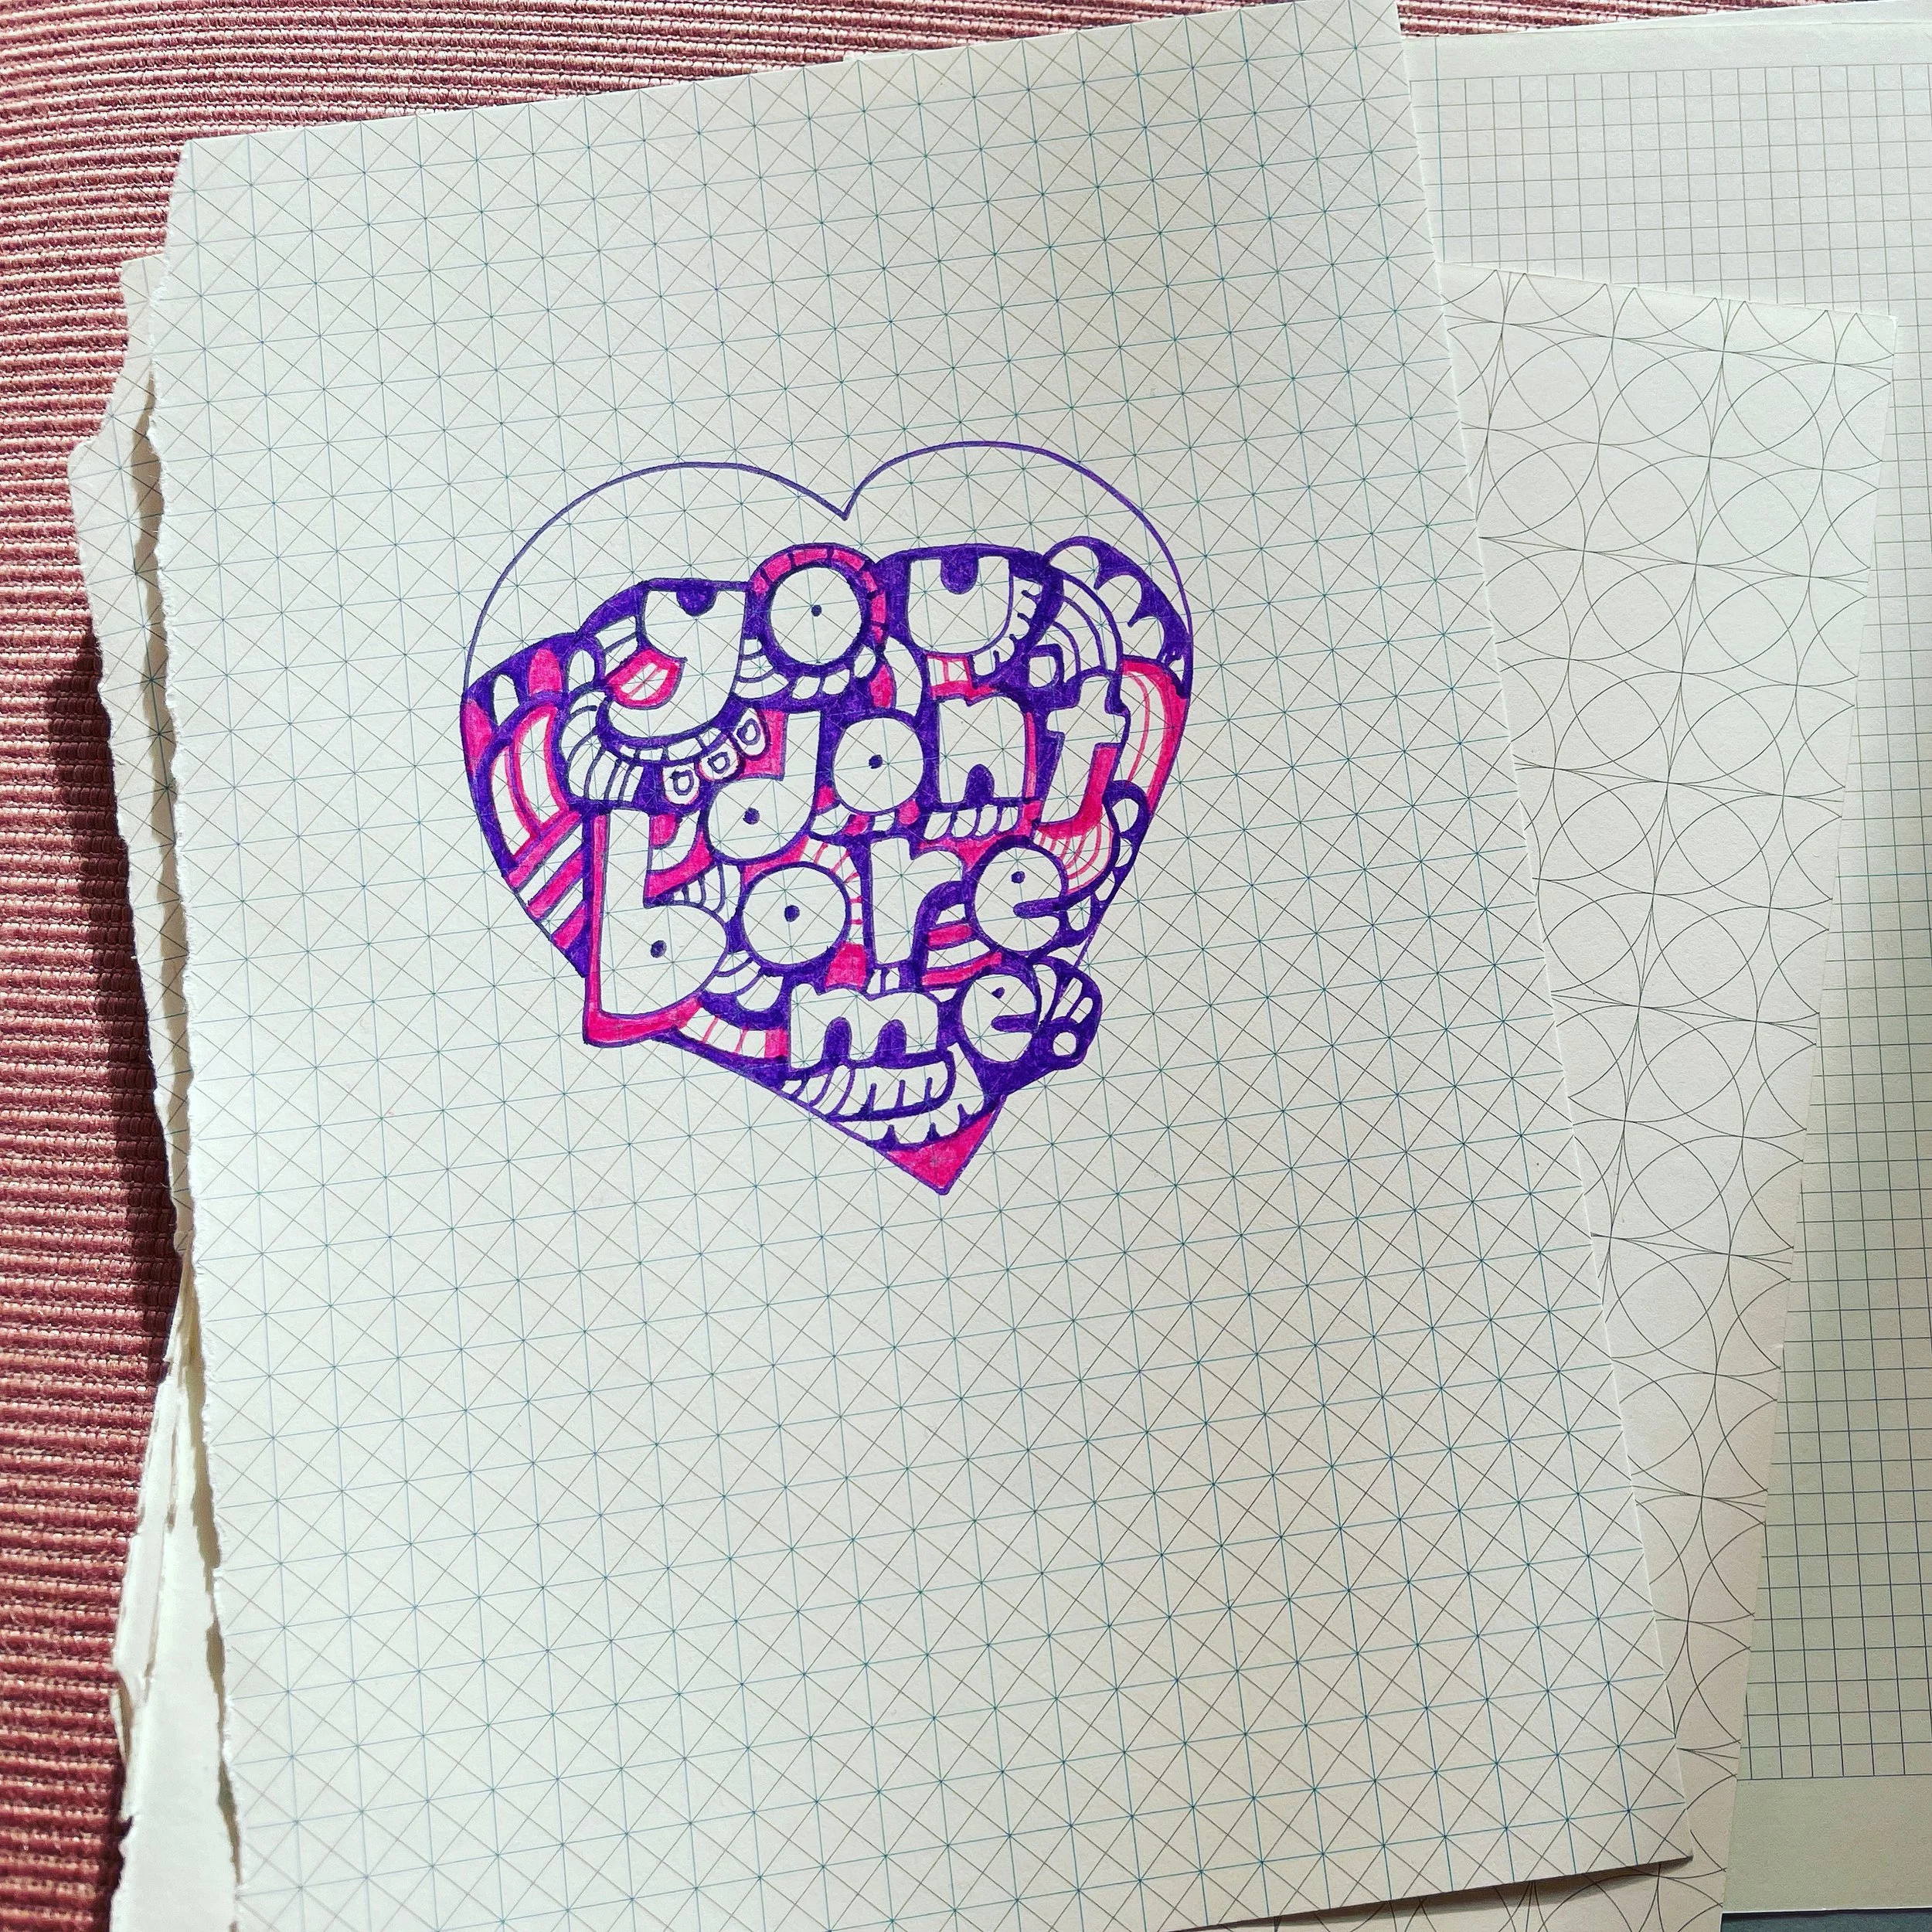 you
dont
bore
me